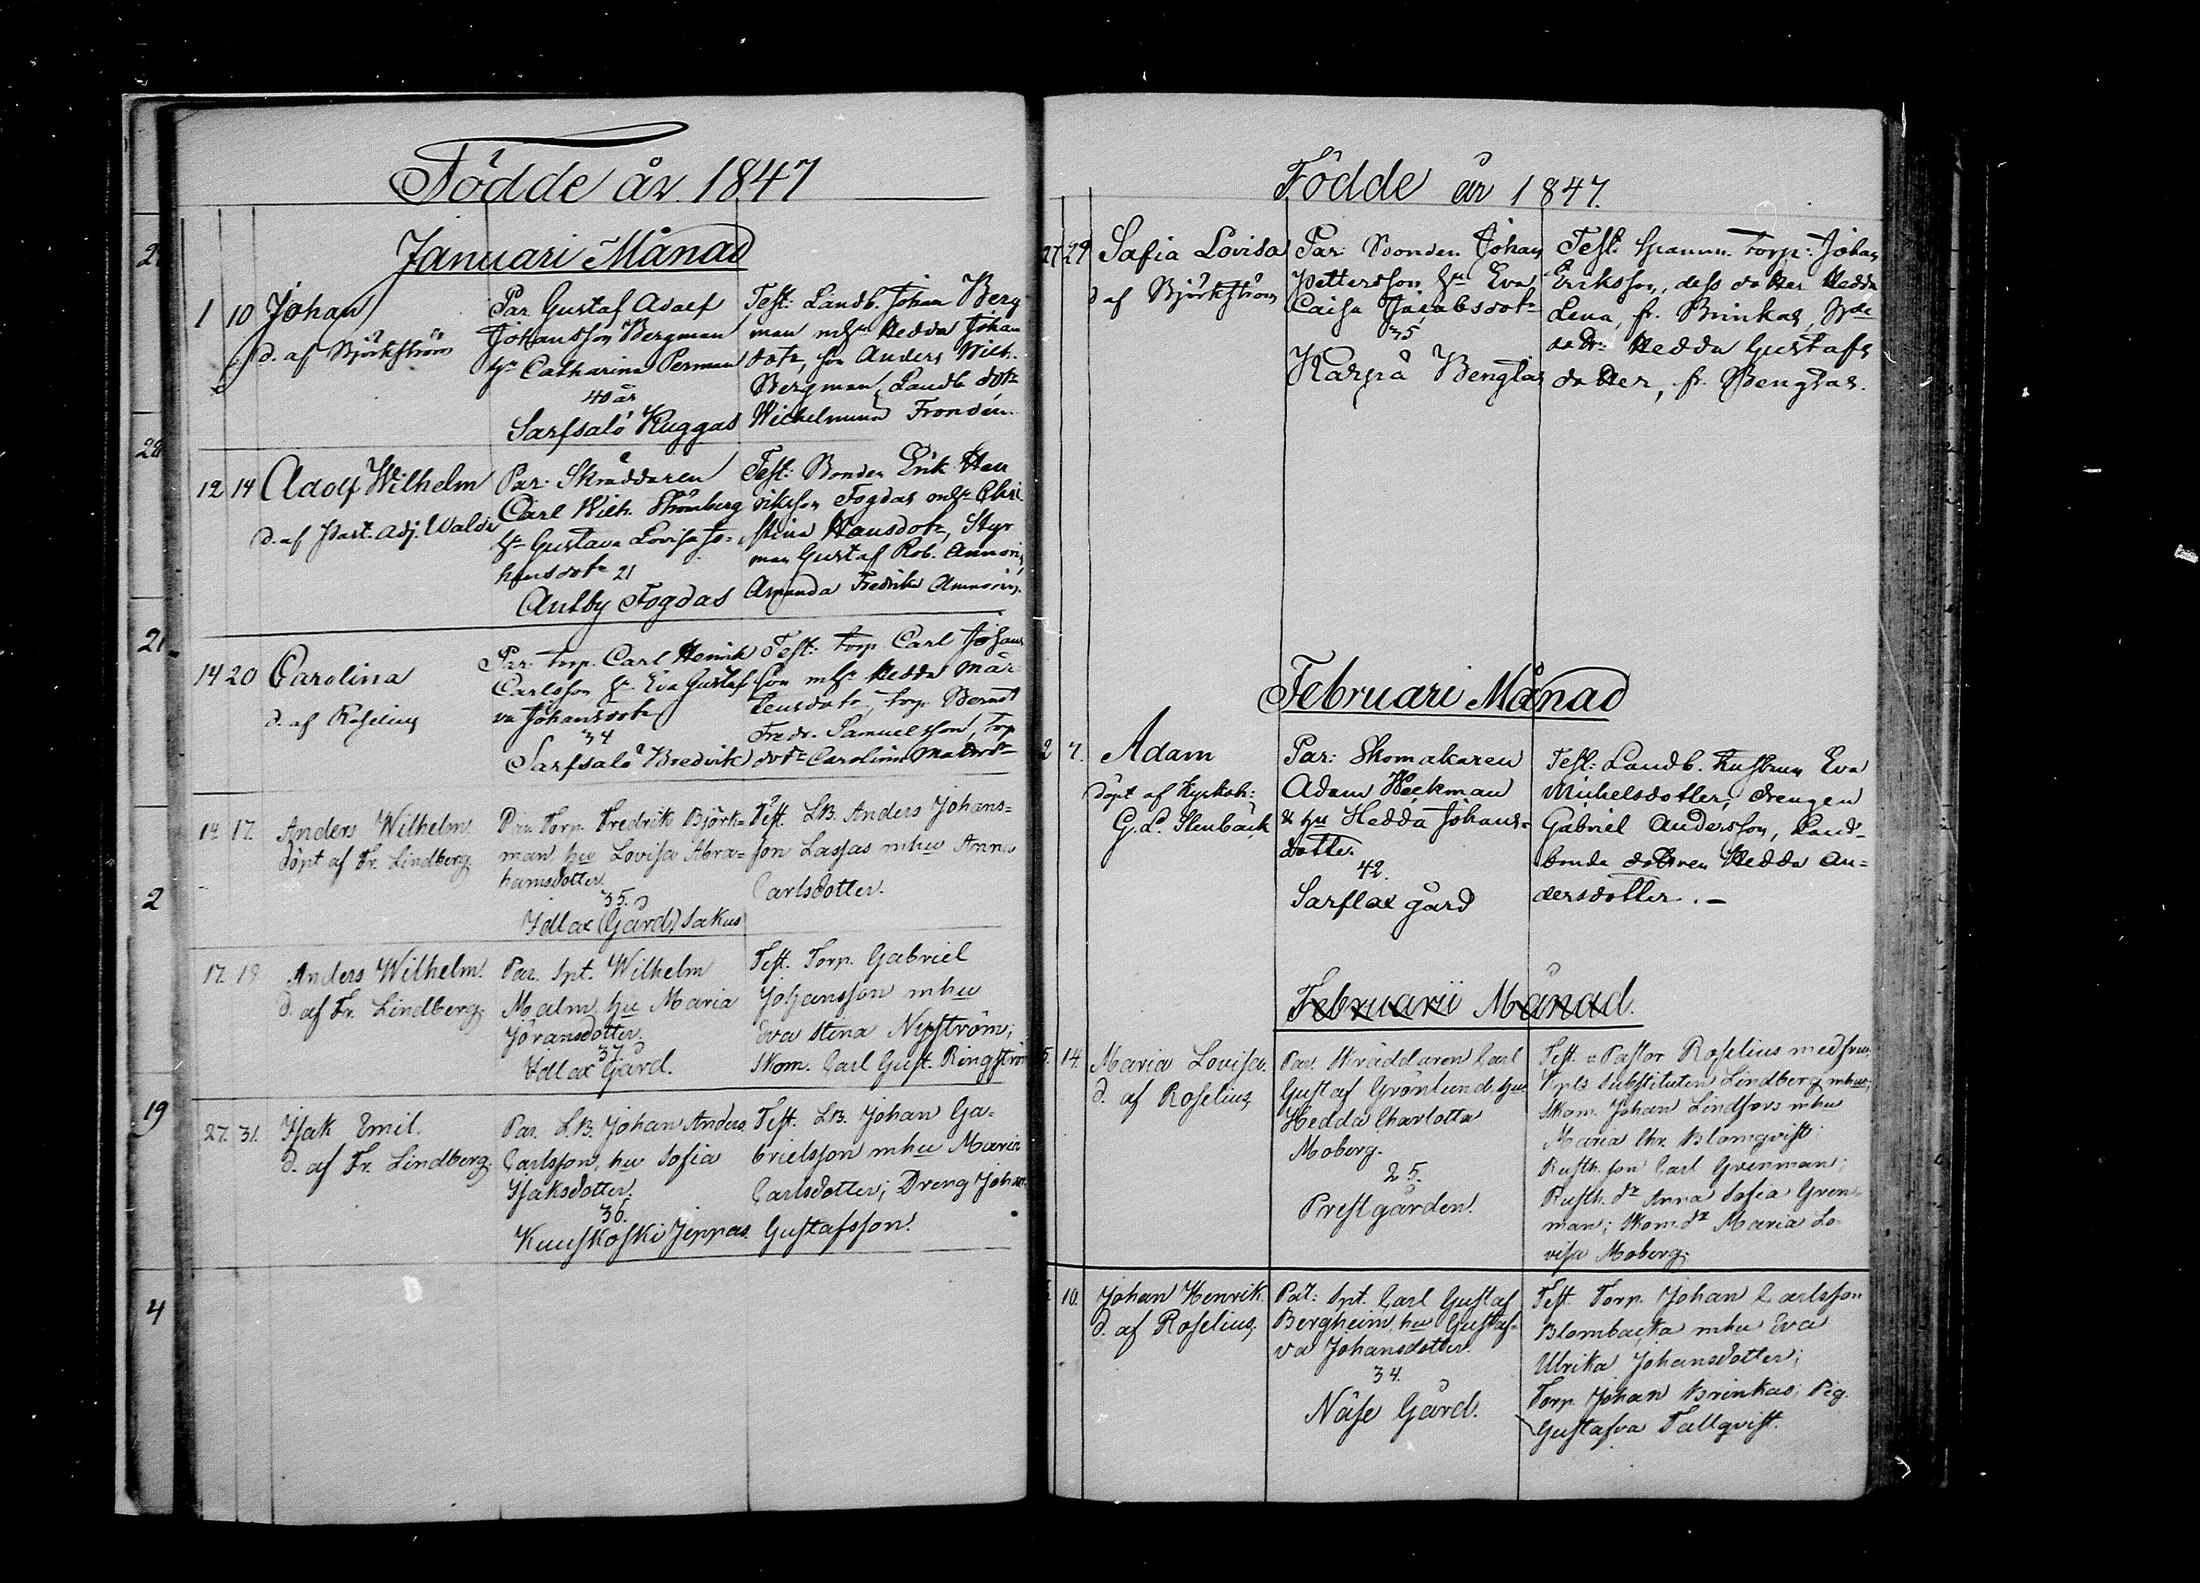 Födde år 1847
Januari Månad
1 10 Johan
d. af Björkström
Par. Gustaf Adolf
Johansson Bergman
hu Catharina Perman
40 år
Sarfsalö Kuggas
Test: Landb. Johan Berg
man mhu Hedda Johans
dotr, son Anders Wilh.
Bergman, Landb. dotr
Wilhelmina Frondén.
12 14 Adolf Wilhelm
d. af Past. Adj. Walde
Par. Skräddaren
Carl Wilh. Strömberg
hu Gustava Lovisa Jo-
hansdotr 21
Antby Fogdas
Test: Bonden Erik Hen
riksson Fogdas mhu Chri
stina Hansdotr, Styr
man Gustaf Rob.
Amanda Fredrika
14 20 Carolina
d. af Roselius
Par. Torp. Carl Henrik
Carlsson hu Eva Gustaf
va Johansdotr
34
Sarfsalö Bredvik
Test: Torp Carl Johans
son mhu Hedda Mår
tensdotr, Torp Berndt
Fredr. Samuelsson, Torp
dotr Carolina
14. 17. Anders Wilhelm
döpt af Fr. Lindberg
Par. Torp. Fredrik Björk=
man, hu Lovisa Abra=
hamsdotter.
35.
Idlax (Gård) Sakus
Test. LB. Anders Johans=
son Lassas mhu Anna
Carlsdotter.
17. 19 Anders Wilhelm.
d. af Fr. Lindberg.
Par. Spt. Wilhelm
Malm, hu Maria
Göransdotter.
37.
Idlax Gård.
Test. Torp. Gabriel
Johansson mhu
Eva Stina Nyström;
Skom. Carl Gust. Ringström
27. 31. Isak Emil.
d. af Fr. Lindberg.
Par. LB. Johan Anders
Carlsson, hu Sofia
Isaksdotter.
36.
Kuuskoski Jeppas.
Test. LB. Johan Ga=
brielsson mhu Maria
Carlsdotter; Dreng Johan
Gustafsson.
Födde år 1847.
27 29 Safia Lovisa
d af Björkström
Par: Bonden Johan
Pettersson, hu Eva
Caisa Jacobsdotr
35
Karpå Bengtas
Test. Torp: Johan
Eriksson, dess dotter Hedda
Lena, fr. Brinkas,
Hedda Gustafs
dotter, fr. Bengtas.
Februari Månad
2 7. Adam
döpt af Kyrkoh:
G. L. Stenbäck
Par: Skomakaren
Adam Häckman
& hu Hedda Johans=
dotter.
42.
Sarflax gård
Test: Landb. hustrun Eva
Michelsdotter, drengen
Gabriel Andersson, Land=
bonde dottren Hedda An=
dersdotter. -
Februarii Månad.
5. 14. Maria Lovisa.
d. af Roselius
Par. Skräddaren Carl
Gustaf Grönlund, hu
Hedda Charlotta
Moberg.
25.
Prestgården.
Test. v Pastor Roselius med fru;
Kpls Substituten Lindberg mhu;
Skom. Johan Lindfors mhu
Maria Chr. Blomqvist;
Rusth. son Carl Grenman;
Rusth. dr Anna Sofia Gren-
man; Skom. dr Maria Lo-
visa Moberg.
10. Johan Henrik.
d. af Roselius.
Par: Spt. Carl Gustaf
Bergheim, hu Gustaf=
va Johansdotter.
34.
Näse Gård.
Test. Torp. Johan Carlsson
Blombacka mhu Eva
Ulrika Johansdotter;
Torp. Johan Brinkas; Pig.
Gustafva Tallqvist.
2
4
19